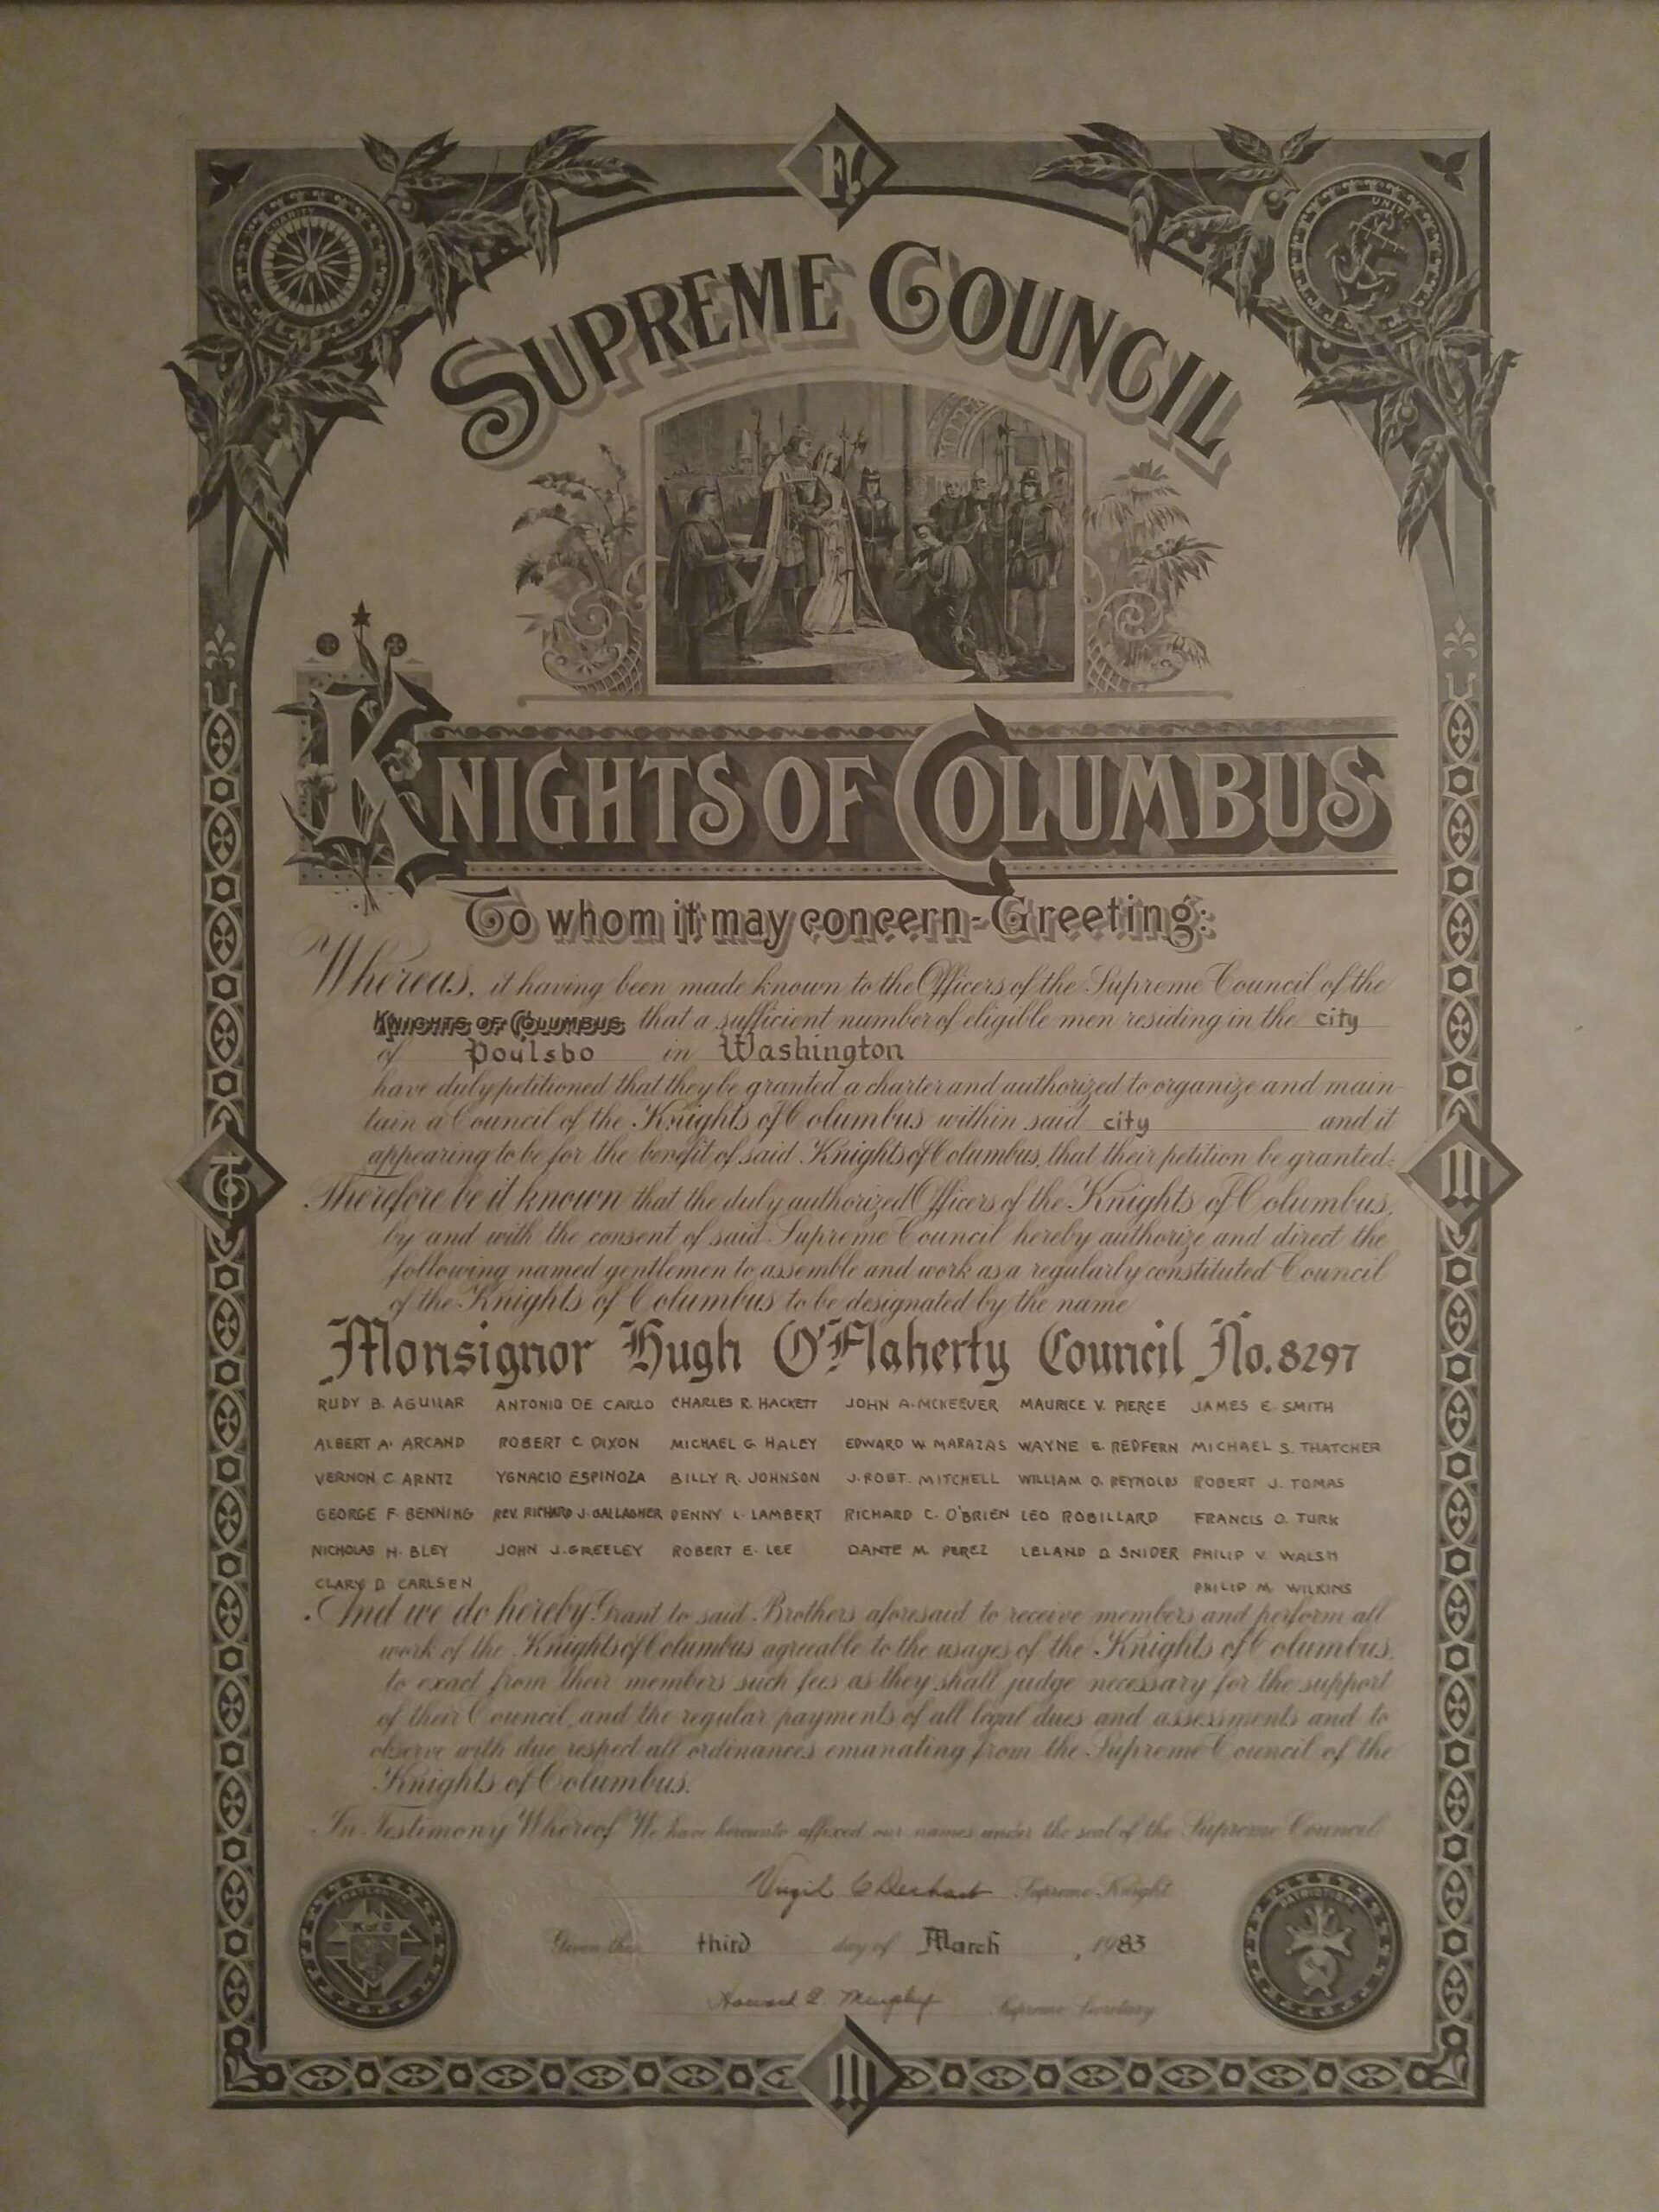 F.
CHARITY
UNITY
SUPREME COUNCIL
KNIGHTS OF COLUMBUS
To whom it may concern-Greeting:
Whereas, it having been made known to the Officers of the Supreme Council of the
KNIGHTS OF COLUMBUS that a sufficient number of eligible men residing in the city
of Poulsbo in Washington
have duly petitioned that they be granted a charter and authorized to organize and main-
tain a Council of the Knights of Columbus within said city and it
appearing to be for the benefit of said Knights of Columbus, that their petition be granted:
Therefore be it known that the duly authorized Officers of the Knights of Columbus,
by and with the consent of said Supreme Council hereby authorize and direct the
following named gentlemen to assemble and work as a regularly constituted Council
of the Knights of Columbus to be designated by the name
Monsignor Hugh O'Flaherty Council No. 8297
RUDY B. AGUILAR ANTONIO DE CARLO CHARLES R. HACKETT JOHN A. MCKEEVER MAURICE V. PIERCE JAMES E. SMITH
ALBERT A. ARCAND ROBERT C. DIXON MICHAEL G. HALEY EDWARD W. MARAZAS WAYNE E. REDFERN MICHAEL S. THATCHER
VERNON C. ARNTZ YGNACIO ESPINOZA BILLY R. JOHNSON J. ROBT. MITCHELL WILLIAM O. REYNOLDS ROBERT J. TOMAS
GEORGE F. BENNING REV. RICHARD J. GALLAGHER DENNY L. LAMBERT RICHARD C. O'BRIEN LEO ROBILLARD FRANCIS O. TURK
NICHOLAS H. BLEY JOHN J. GREELEY ROBERT E. LEE DANTE M. PEREZ LELAND D. SNIDER PHILIP V. WALSH
CLARY D. CARLSEN PHILIP M. WILKINS
And we do hereby Grant to said Brothers aforesaid to receive members and perform all
work of the Knights of Columbus agreeable to the usages of the Knights of Columbus,
to exact from their members such fees as they shall judge necessary for the support
of their Council, and the regular payments of all legal dues and assessments and to
observe with due respect all ordinances emanating from the Supreme Council of the
Knights of Columbus.
In Testimony Whereof We have hereunto affixed our names under the seal of the Supreme Council
Virgil C Dechant Supreme Knight
Given this third day of March, 1983
Howard E. Murphy Supreme Secretary
FRATERNITY
K of C
PATRIOTISM